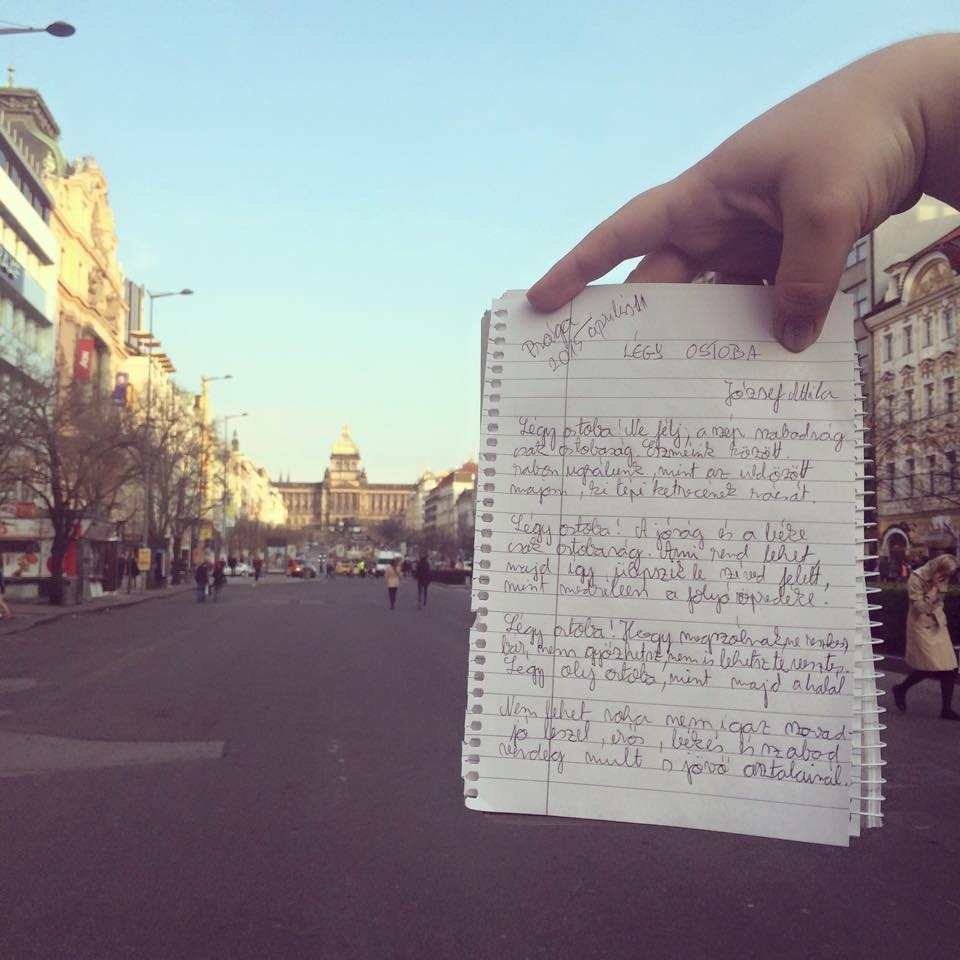 Prága
2015 április 11
LÉGY OSTOBA
József Attila
Légy ostoba! Ne félj, a szép szabadság
csak ostobaság. Eszmeink között
rabon ugrálunk mint az üldözött
majom, ki tépi ketrecének rácsát.
Légy ostoba! A jóság és a béke
csak ostobaság. Ami rend lehet,
majd így ülepszik le szíved felett,
mint medrében a folyó söpredéke.
Légy ostoba! Hogy megszólnak, ne
bár nem győzhetsz, nem is lehetsz te vesztes.
Légy oly ostoba, mint majd a halál
Nem lehet soha nem igaz szavad-
jó leszel, erős, békés és szabad
vendég mult s jövő asztalainál.